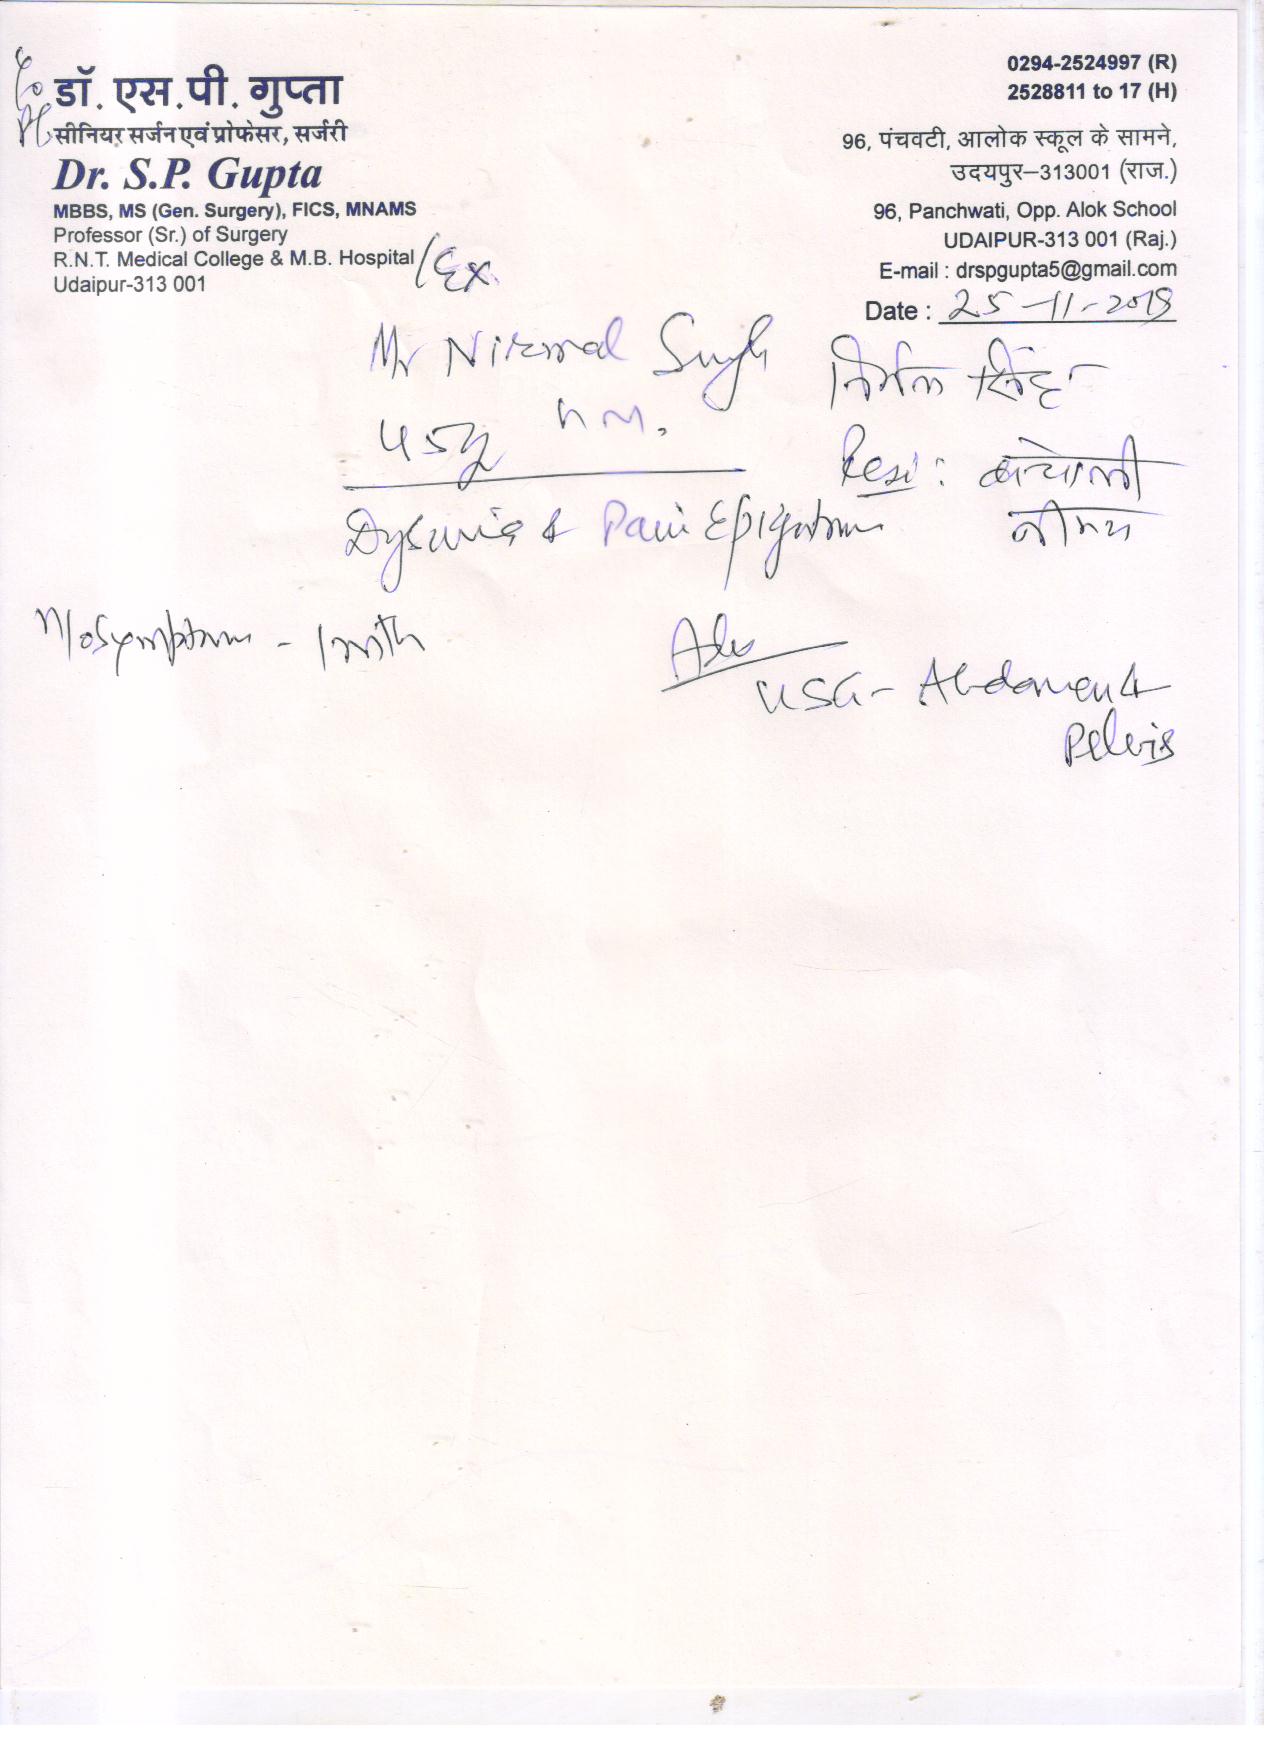 डॉ. एस.पी. गुप्ता
सीनियर सर्जन एवं प्रोफेसर, सर्जरी
Dr. S.P. Gupta
MBBS, MS (Gen. Surgery), FICS, MNAMS
Professor (Sr.) of Surgery
R.N.T. Medical College & M.B. Hospital /Ex.
Udaipur-313 001
0294-2524997 (R)
2528811 to 17 (H)
96, पंचवटी, आलोक स्कूल के सामने,
उदयपुर–313001 (राज.)
96, Panchwati, Opp. Alok School
UDAIPUR-313 001 (Raj.)
E-mail : drspgupta5@gmail.com
Date : 25-11-2019
Mr Nirmal Singh निर्मल सिंह
45y
Resi :
Dysuria & Pain Epigastrium
Adv
USG - Abdomen &
Pelvis